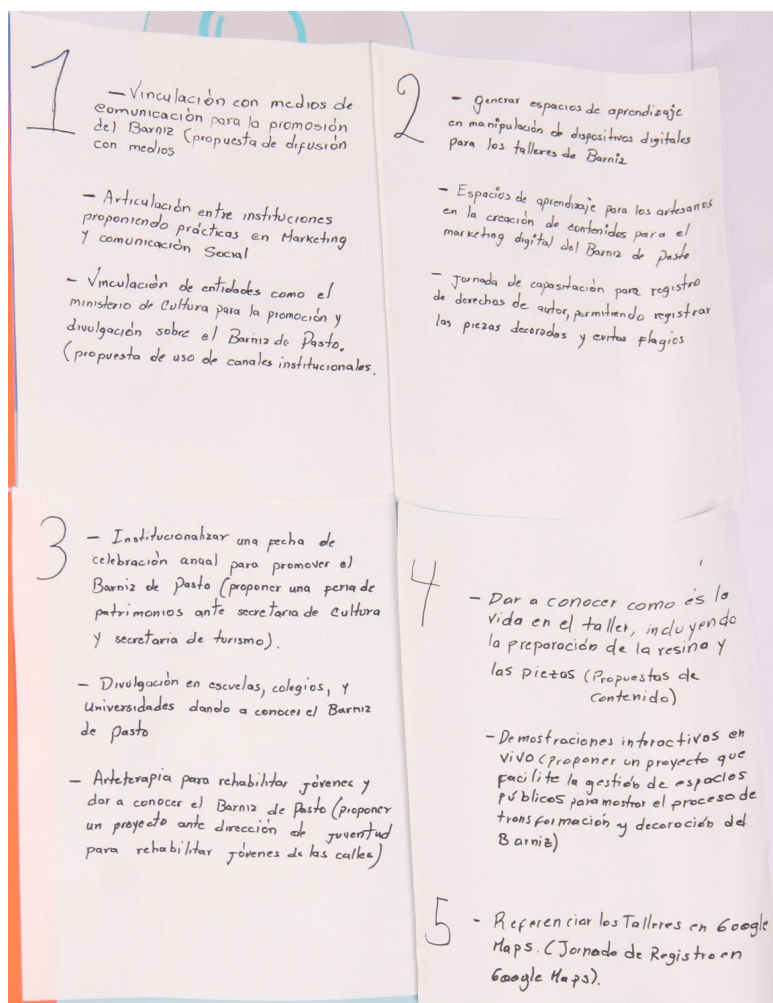 1
- Vinculación con medios de
comunicación para la promosión
del Barniz (propuesta de difusión
con medios
- Articulación entre instituciones
proponiendo prácticas en Marketing
y comunicación Social
- Vinculación de entidades como el
ministerio de Cultura para la promoción y
divulgación sobre el Barniz de Pasto.
(propuesta de uso de canales institucionales.
2
- Generar espacios de aprendizaje
en manipulación de dispositivos digitales
para los talleres de Barniz
- Espacios de aprendizaje para los artesanos
en la creación de contenidos para el
marketing digital del Barniz de Pasto
- Jornada de capasitación para registro
de derechos de autor, permitiendo registrar
las piezas decorados y evitar Plagios
3
- Institucionalizar una fecha de
celebración anual para promover el
Barniz de Pasto (proponer una feria de
patrimonios ante secretaria de Cultura
y secretaria de turismo).
- Divulgación en escuelas, colegios, y
Universidades dando a conocer el Barniz
de Pasto
- Arteterapia para rehabilitar jóvenes y
dar a conocer el Barniz de Pasto (proponer
un proyecto ante dirección de juventud
para rehabilitar jóvenes de las calles)
4
- Dar a conocer como es la
vida en el taller, incluyendo
la preparación de la resina y
las piezas (Propuestas de
contenido)
- Demostraciones interactivas en
vivo (proponer un proyecto que
facilite la gestión de espacios
públicos para mostrar el proceso de
transformación y decoración del
Barniz)
5
- Referenciar los Talleres en Google
Maps. (Jornada de Registro en
Google Maps).